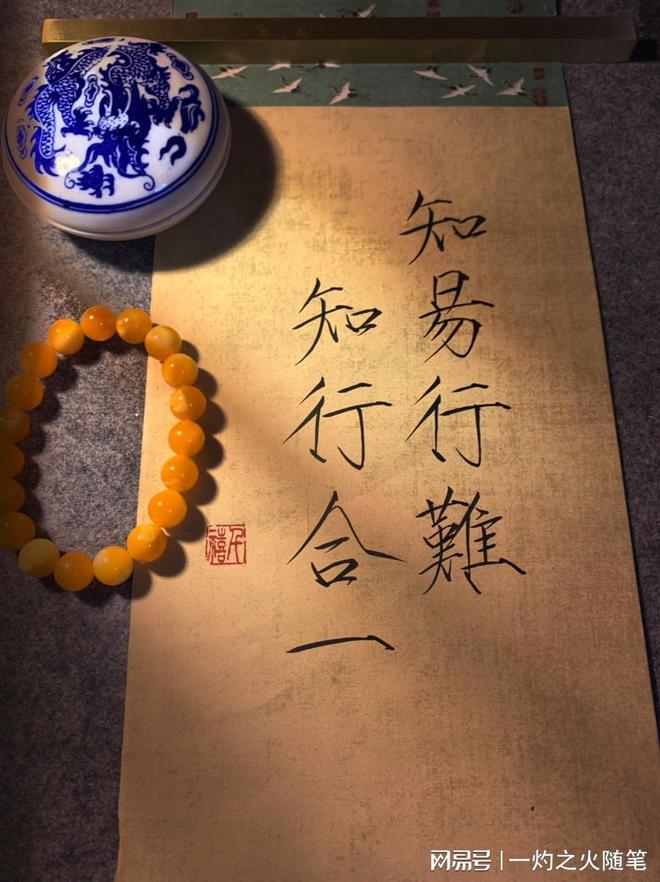 知易行難
知行合一
网易号 | 一灼之火随笔